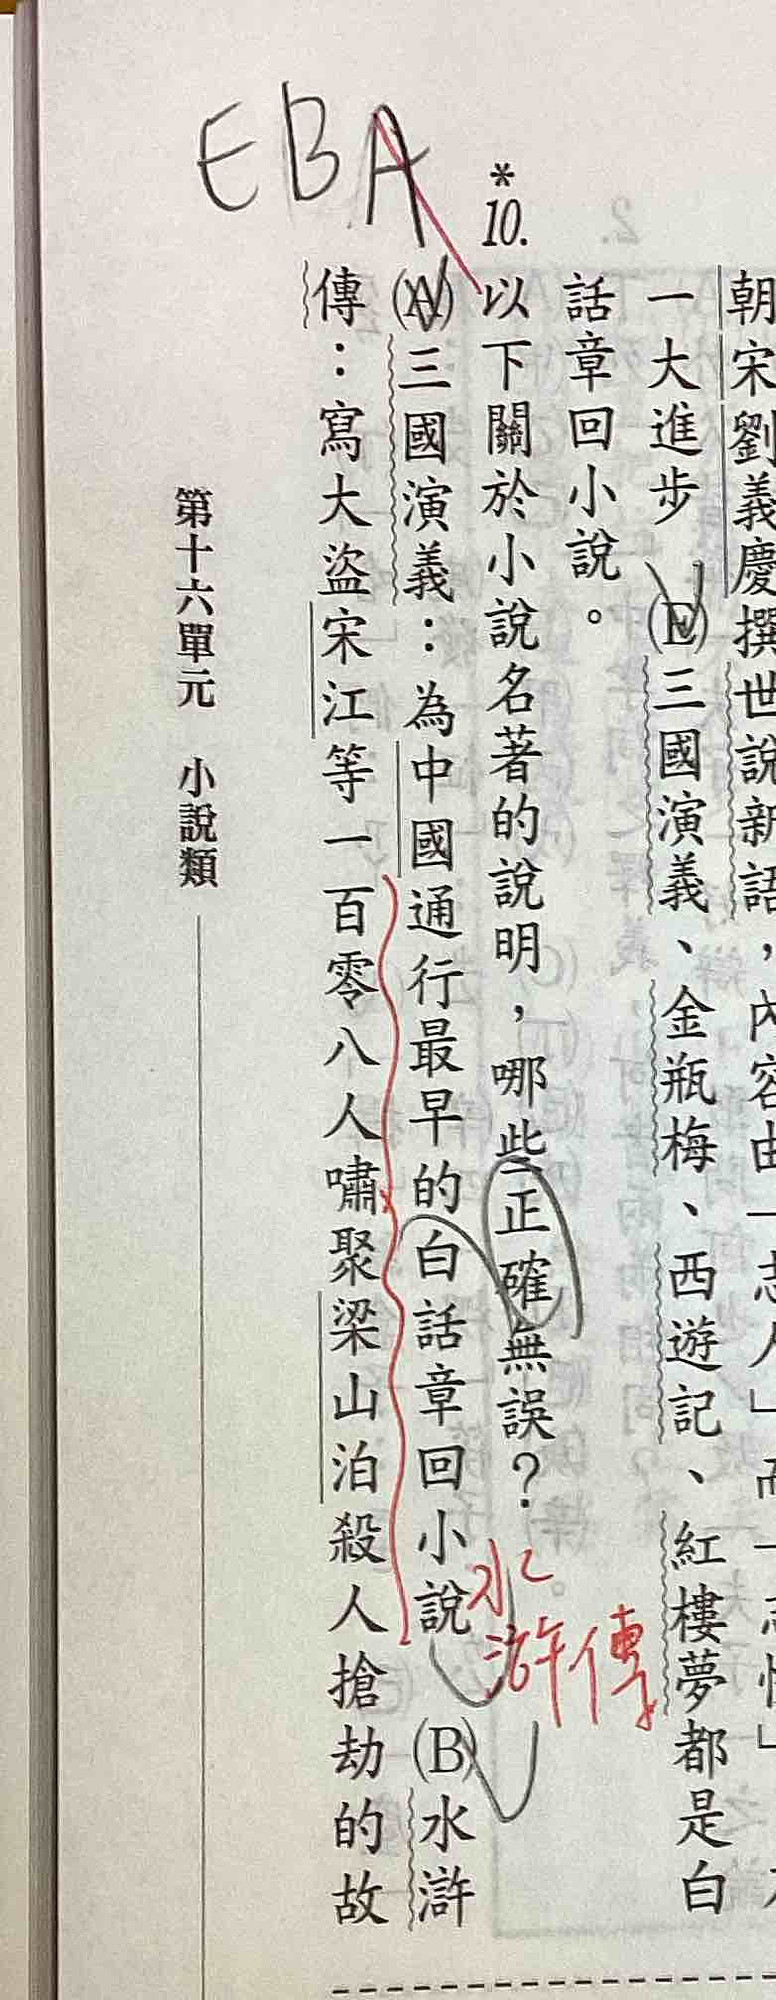 朝宋劉義慶撰世說新語，內容由「志人」而「志怪」
一大進步 (E)三國演義、金瓶梅、西遊記、紅樓夢都是白
話章回小說。
*10. 以下關於小說名著的說明，哪些正確無誤？
水滸傳
EBA
(A)三國演義：為中國通行最早的白話章回小說 (B)水滸
傳：寫大盜宋江等一百零八人嘯聚梁山泊殺人搶劫的故
第十六單元 小說類